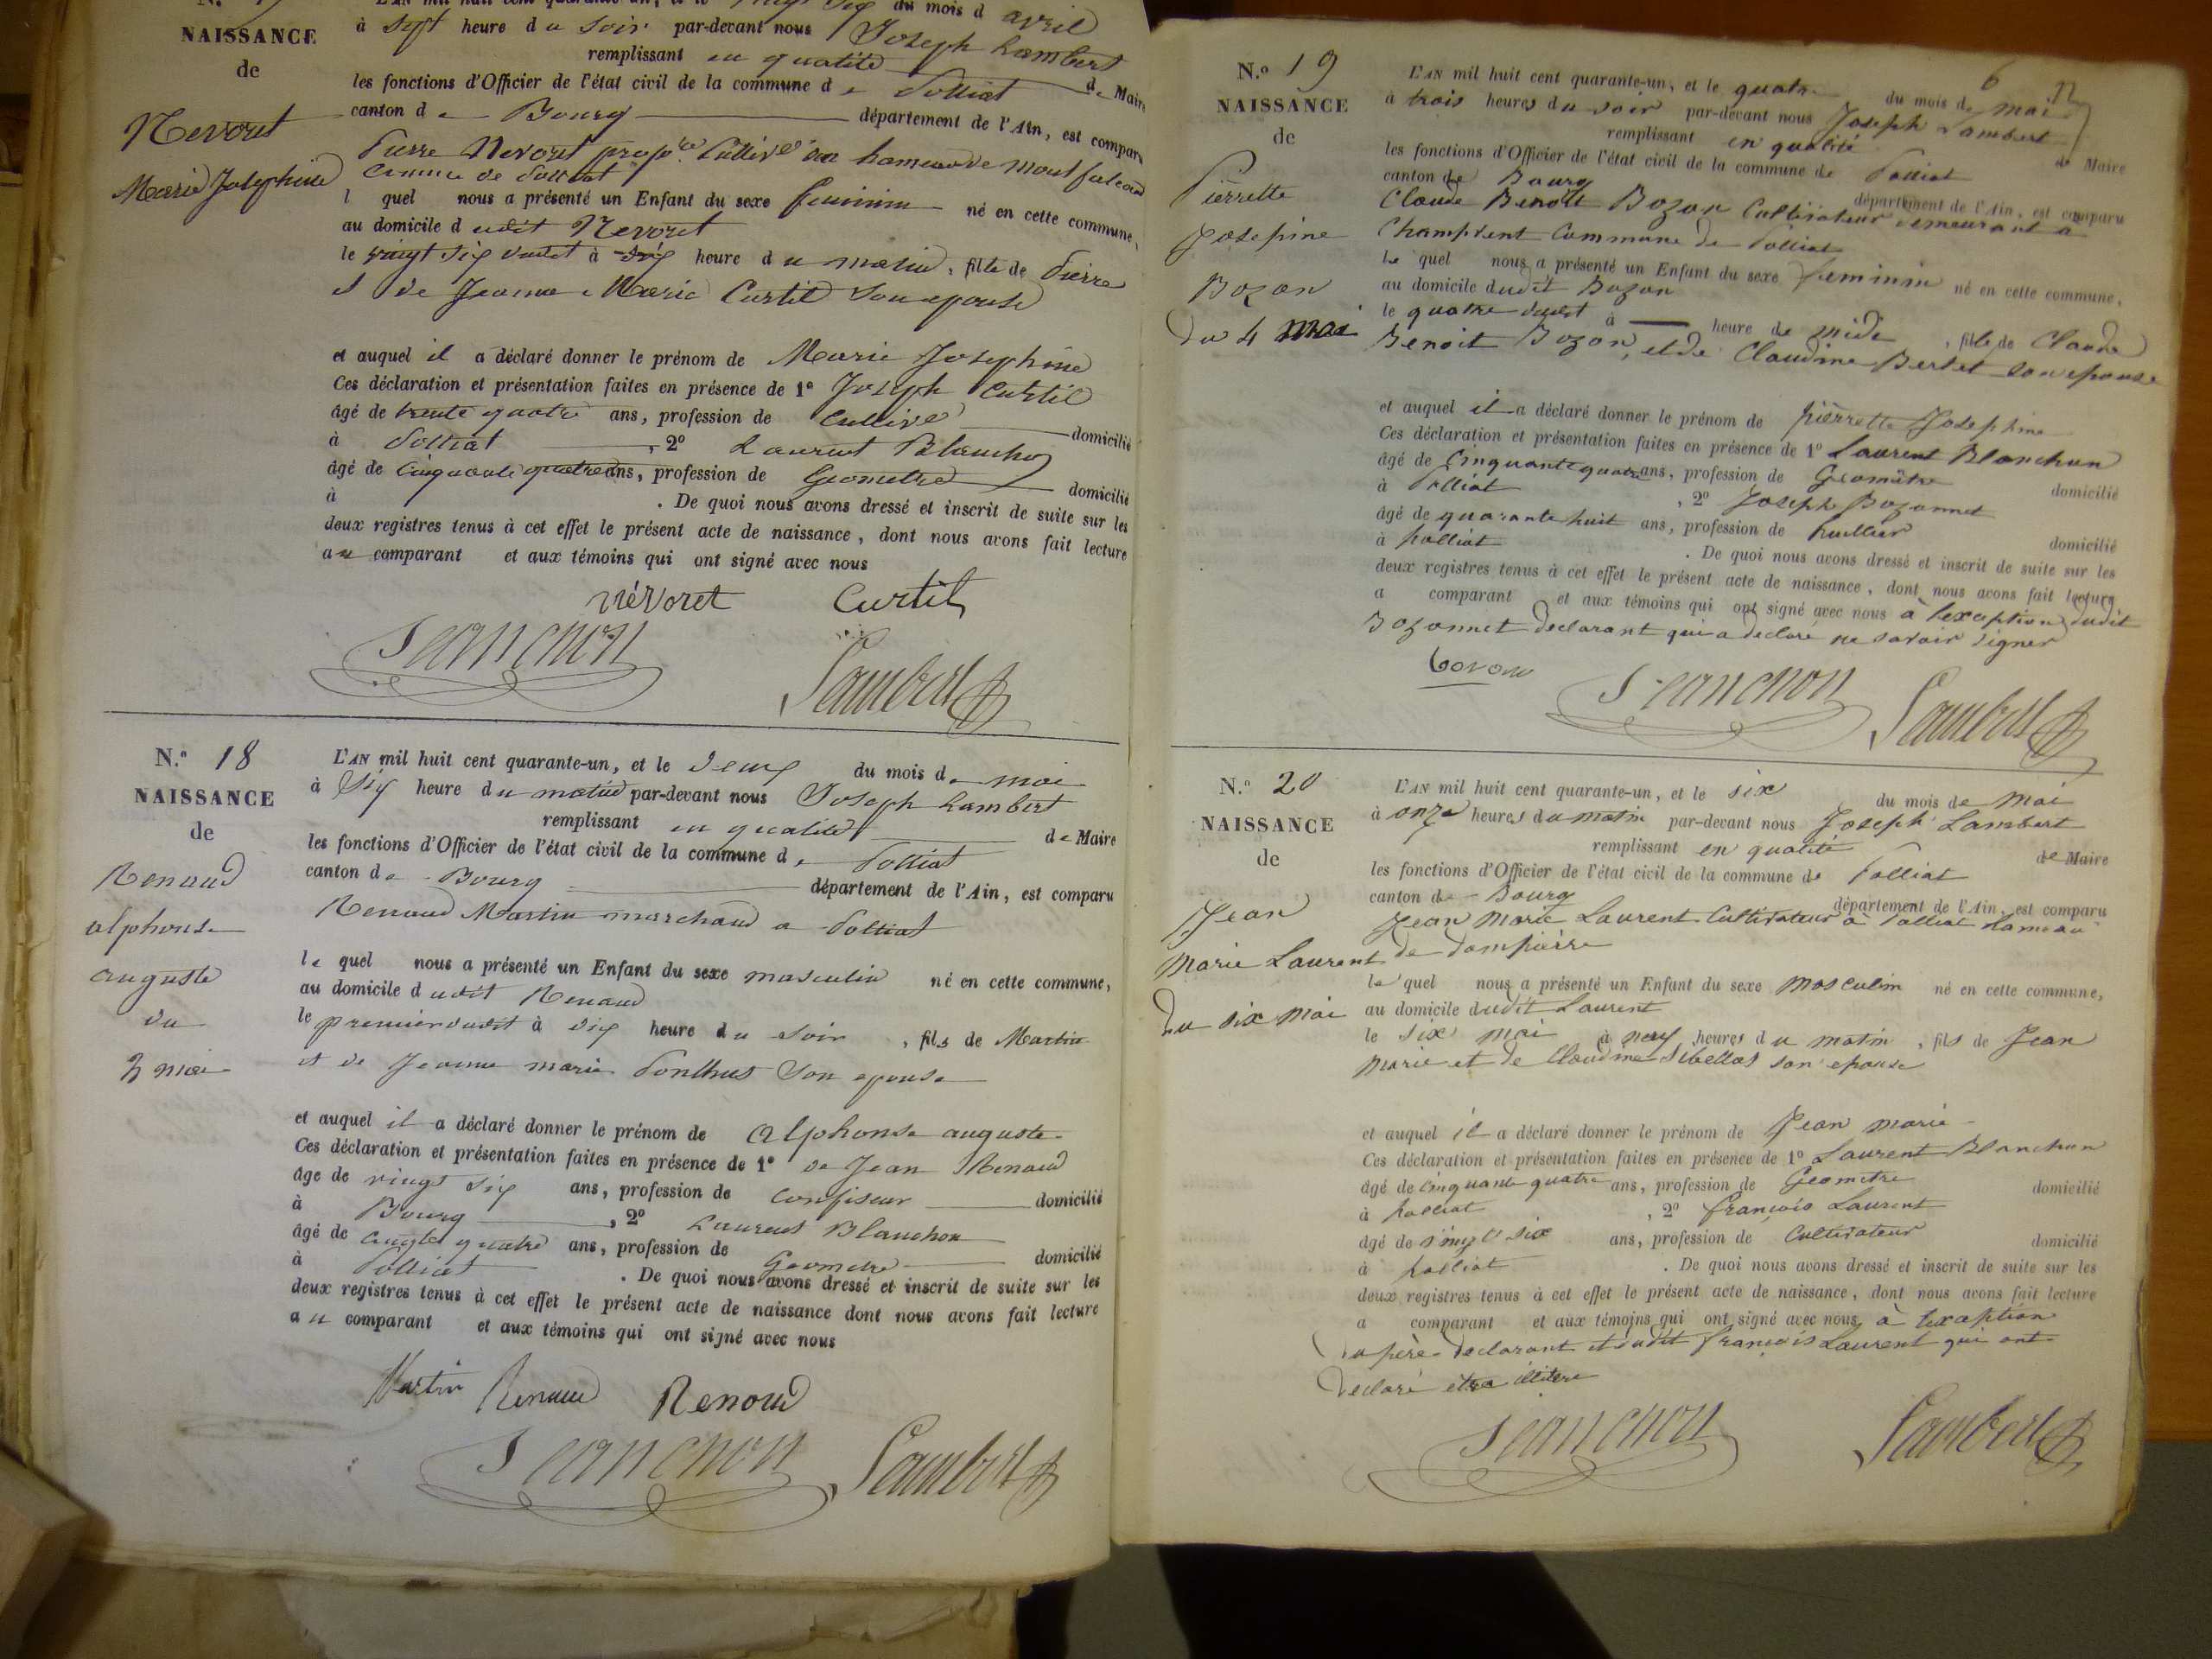 NAISSANCE
de
Nevoret
Marie Josephine
du mois d avril
à sept heure du soir par-devant nous Joseph Lambert
remplissant en qualité de Maire
les fonctions d'Officier de l'état civil de la commune de Polliat
canton de Bourg département de l'Ain, est comparu
Pierre Nevoret prop.re Cultiv.r au hameau de Montfalcon
Comune de Polliat
l quel nous a présenté un Enfant du sexe feminin né en cette commune,
au domicile dudit Nevoret
le vingt six dudit à six heure du matin, fille de Pierre
et de Jeanne Marie Curtil son epouse
et auquel il a déclaré donner le prénom de Marie Josephine
Ces déclaration et présentation faites en présence de 1º Joseph Curtil
âgé de trente quatre ans, profession de Cultiv.r domicilié
à Polliat, 2º Laurent Blanchon
âgé de Cinquante quatre ans, profession de Geometre domicilié
à . De quoi nous avons dressé et inscrit de suite sur les
deux registres tenus à cet effet le présent acte de naissance, dont nous avons fait lecture
au comparant et aux témoins qui ont signé avec nous
Névoret Curtil
Blanchon Lambert
N.º 18
NAISSANCE
de
Renaud
alphonse
auguste
du
2 mai
L'AN mil huit cent quarante-un, et le deux du mois de mai
à six heure du matin par-devant nous Joseph Lambert
remplissant en qualité de Maire
les fonctions d'Officier de l'état civil de la commune de Polliat
canton de Bourg département de l'Ain, est comparu
Renaud Martin marchand a Polliat
le quel nous a présenté un Enfant du sexe masculin né en cette commune,
au domicile dudit Renaud
le premier dudit à dix heure du soir, fils de Martin
et de Jeanne marie Ponthus son epouse
et auquel il a déclaré donner le prénom de Alphonse auguste
Ces déclaration et présentation faites en présence de 1º de Jean Renaud
âge de vingt six ans, profession de Confiseur domicilié
à Bourg, 2º Laurent Blanchon
âgé de quatre ans, profession de Geometre domicilié
à Polliat . De quoi nous avons dressé et inscrit de suite sur les
deux registres tenus à cet effet le présent acte de naissance dont nous avons fait lecture
au comparant et aux témoins qui ont signé avec nous
Martin Renaud Renoud
Blanchon Lambert
6
N.º 19
NAISSANCE
de
Pierrette
Josephine
Bozon
Du 4 mai
L'AN mil huit cent quarante-un, et le quatre du mois de mai
à trois heures du soir par-devant nous Joseph Lambert
remplissant en qualité de Maire
les fonctions d'Officier de l'état civil de la commune de Polliat
canton de Bourg département de l'Ain, est comparu
Claude Benoît Bozon Cultivateur demeurant a
Champvent Commune de Polliat
le quel nous a présenté un Enfant du sexe feminin né en cette commune,
au domicile dudit Bozon
le quatre dudit à heure de midi, fille de Claude
Benoit Bozon, et de Claudine Berlet son epouse
et auquel il a déclaré donner le prénom de pièrrette Josephine
Ces déclaration et présentation faites en présence de 1º Laurent Blanchon
âgé de Cinquante quatre ans, profession de Géomêtre domicilié
à Polliat, 2º Joseph Bozonnet
âgé de quarante huit ans, profession de huillier domicilié
à polliat . De quoi nous avons dressé et inscrit de suite sur les
deux registres tenus à cet effet le présent acte de naissance, dont nous avons fait lecture
a comparant et aux témoins qui ont signé avec nous à lexception dudit
Bozonnet declarant qui a declaré ne savoir signer
Bozon
Blanchon Lambert
N.º 20
NAISSANCE
de
Jean
Marie Laurent
Du six mai
L'AN mil huit cent quarante-un, et le six du mois de mai
à onze heures du matin par-devant nous Joseph Lambert
remplissant en qualité de Maire
les fonctions d'Officier de l'état civil de la commune de Polliat
canton de Bourg département de l'Ain, est comparu
Jean Marie Laurent Cultivateur à Polliat hameau
de dompièrre
le quel nous a présenté un Enfant du sexe Masculin né en cette commune,
au domicile dudit Laurent
le six mai à neuf heures du matin, fils de Jean
Marie et de Claudine Sibellas son epouse
et auquel il a déclaré donner le prénom de Jean marie
Ces déclaration et présentation faites en présence de 1º Laurent Blanchon
âgé de Cinquante quatre ans, profession de Geometre domicilié
à polliat, 2º francois Laurent
âgé de vingt six ans, profession de Cultivateur domicilié
à polliat . De quoi nous avons dressé et inscrit de suite sur les
deux registres tenus à cet effet le présent acte de naissance, dont nous avons fait lecture
a comparant et aux témoins qui ont signé avec nous à lexception
du père declarant et dudit francois Laurent qui ont
Declaré etre illitere
Blanchon Lambert